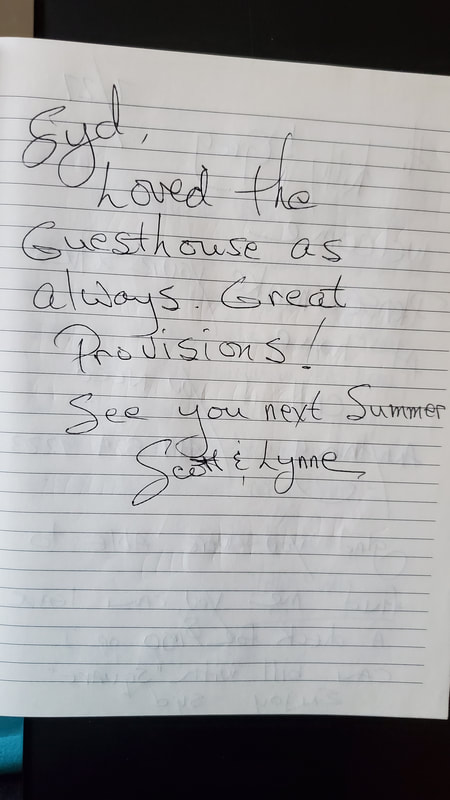 Syd,
Loved the
Guesthouse as
always. Great
Provisions!
See you next Summer
Scott & Lynne